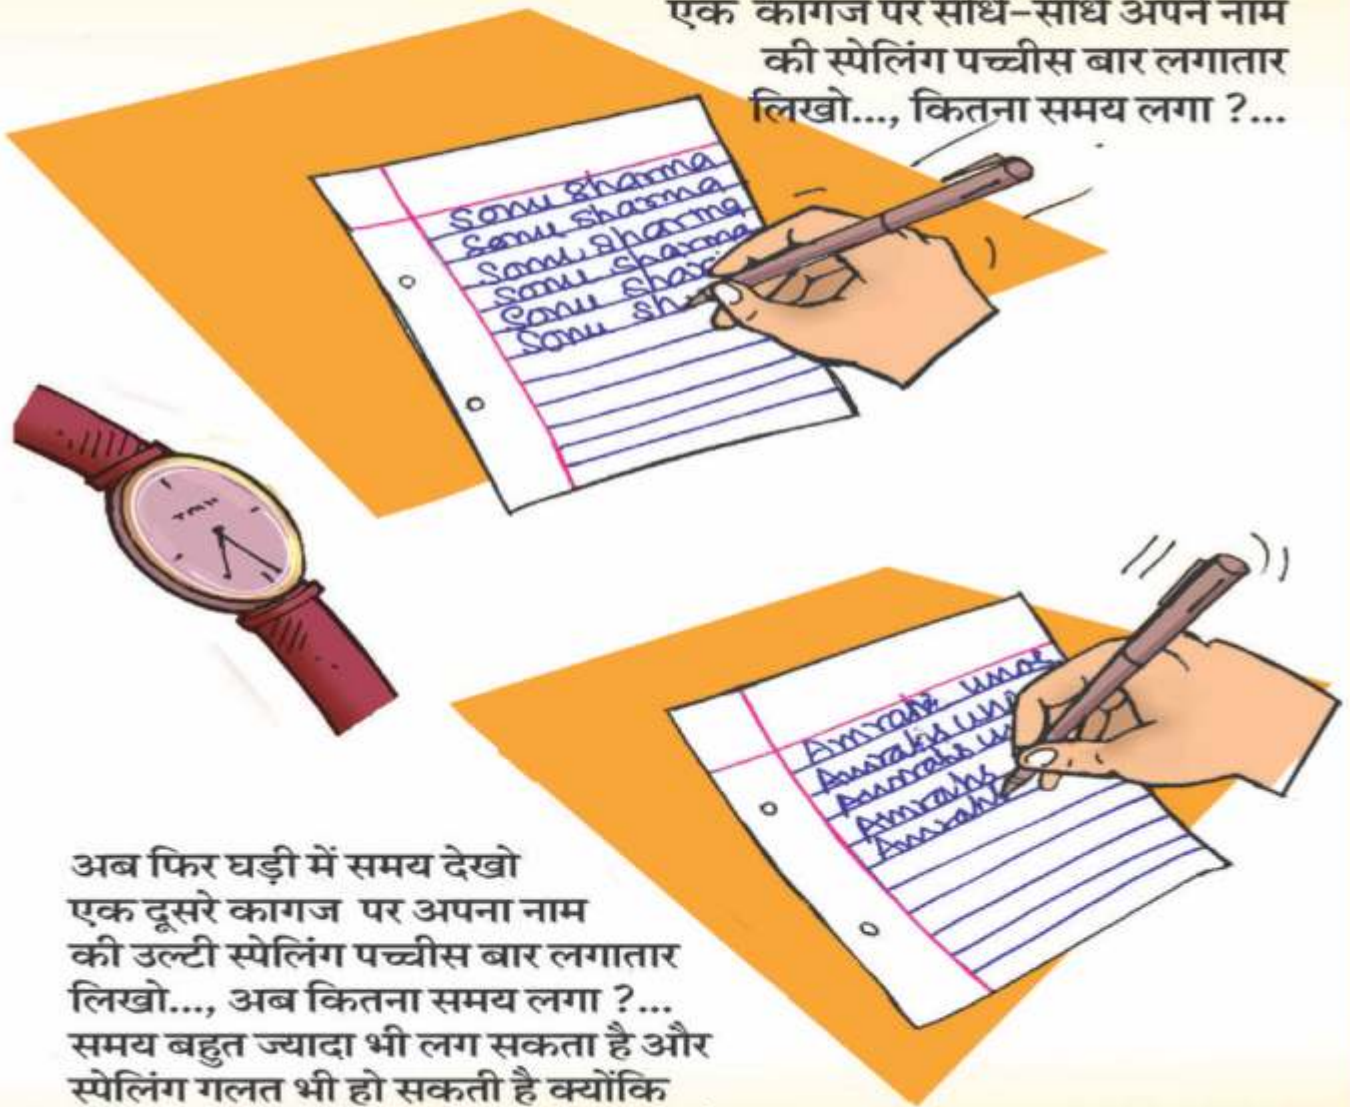 एक कागज पर सीधे-सीधे अपने नाम
की स्पेलिंग पच्चीस बार लगातार
लिखो..., कितना समय लगा ?...
Sonu Sharma
Sonu Sharma
Sonu Sharma
Sonu Sharma
Sonu Shar
Sonu Sh
Amrahs unos
Amrahs un
Amrahs un
Amrahs
Amrahs
अब फिर घड़ी में समय देखो
एक दूसरे कागज पर अपना नाम
की उल्टी स्पेलिंग पच्चीस बार लगातार
लिखो..., अब कितना समय लगा ?...
समय बहुत ज्यादा भी लग सकता है और
स्पेलिंग गलत भी हो सकती है क्योंकि